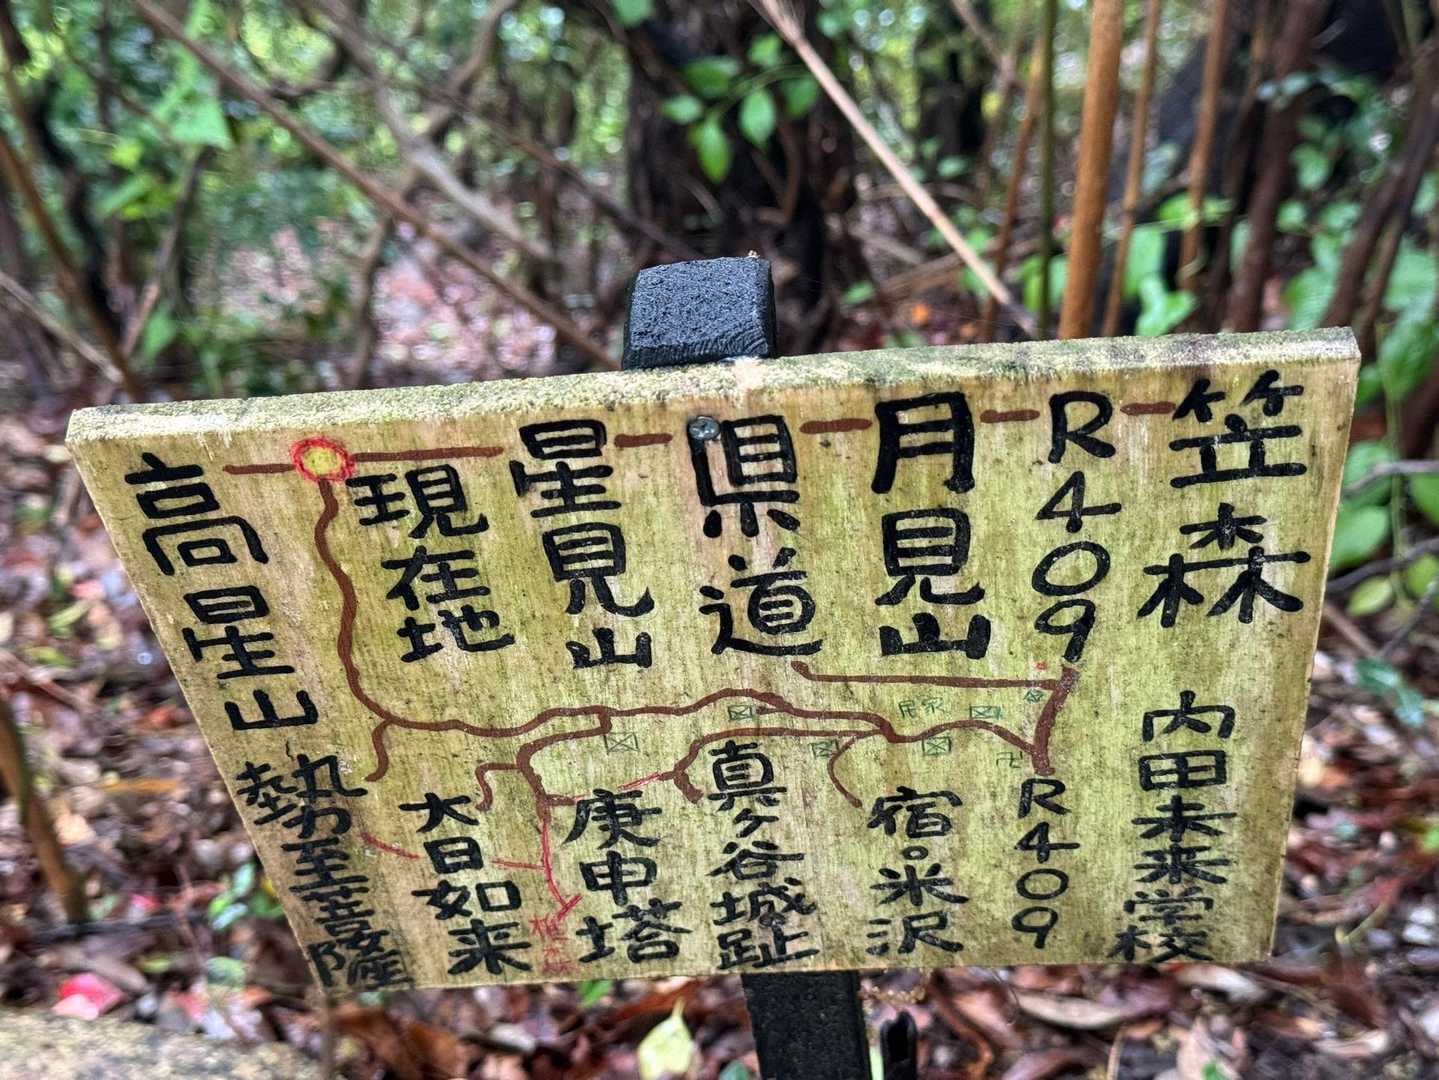 笠森
R409
月見山
県道
星見山
現在地
高星山
民家
卍
内田未来学校
R409
宿。米沢
真ヶ谷城趾
庚申塔
大日如来
勢至菩薩